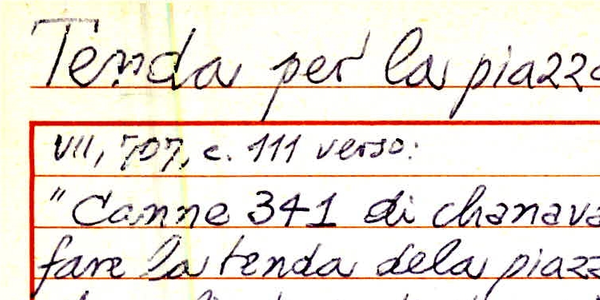 Tenda per la piazza
VII, 707, c. 111 verso:
"Canne 341 di chanava
fare la tenda dela piazz